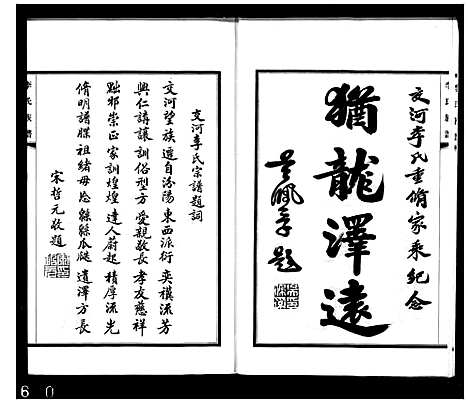 交河李氏重脩家乘紀念
猶龍澤遠
吳佩孚題
交河李氏宗譜題詞
交河望族遷自汾陽東西派衍奕禩流芳
興仁講讓訓俗型方愛親敬長孝友慈祥
黜邪崇正家訓煌煌達人蔚起積厚流光
脩明譜牒祖緒毋忘緜緜瓜瓞遺澤方長
宋哲元敬題
6 0